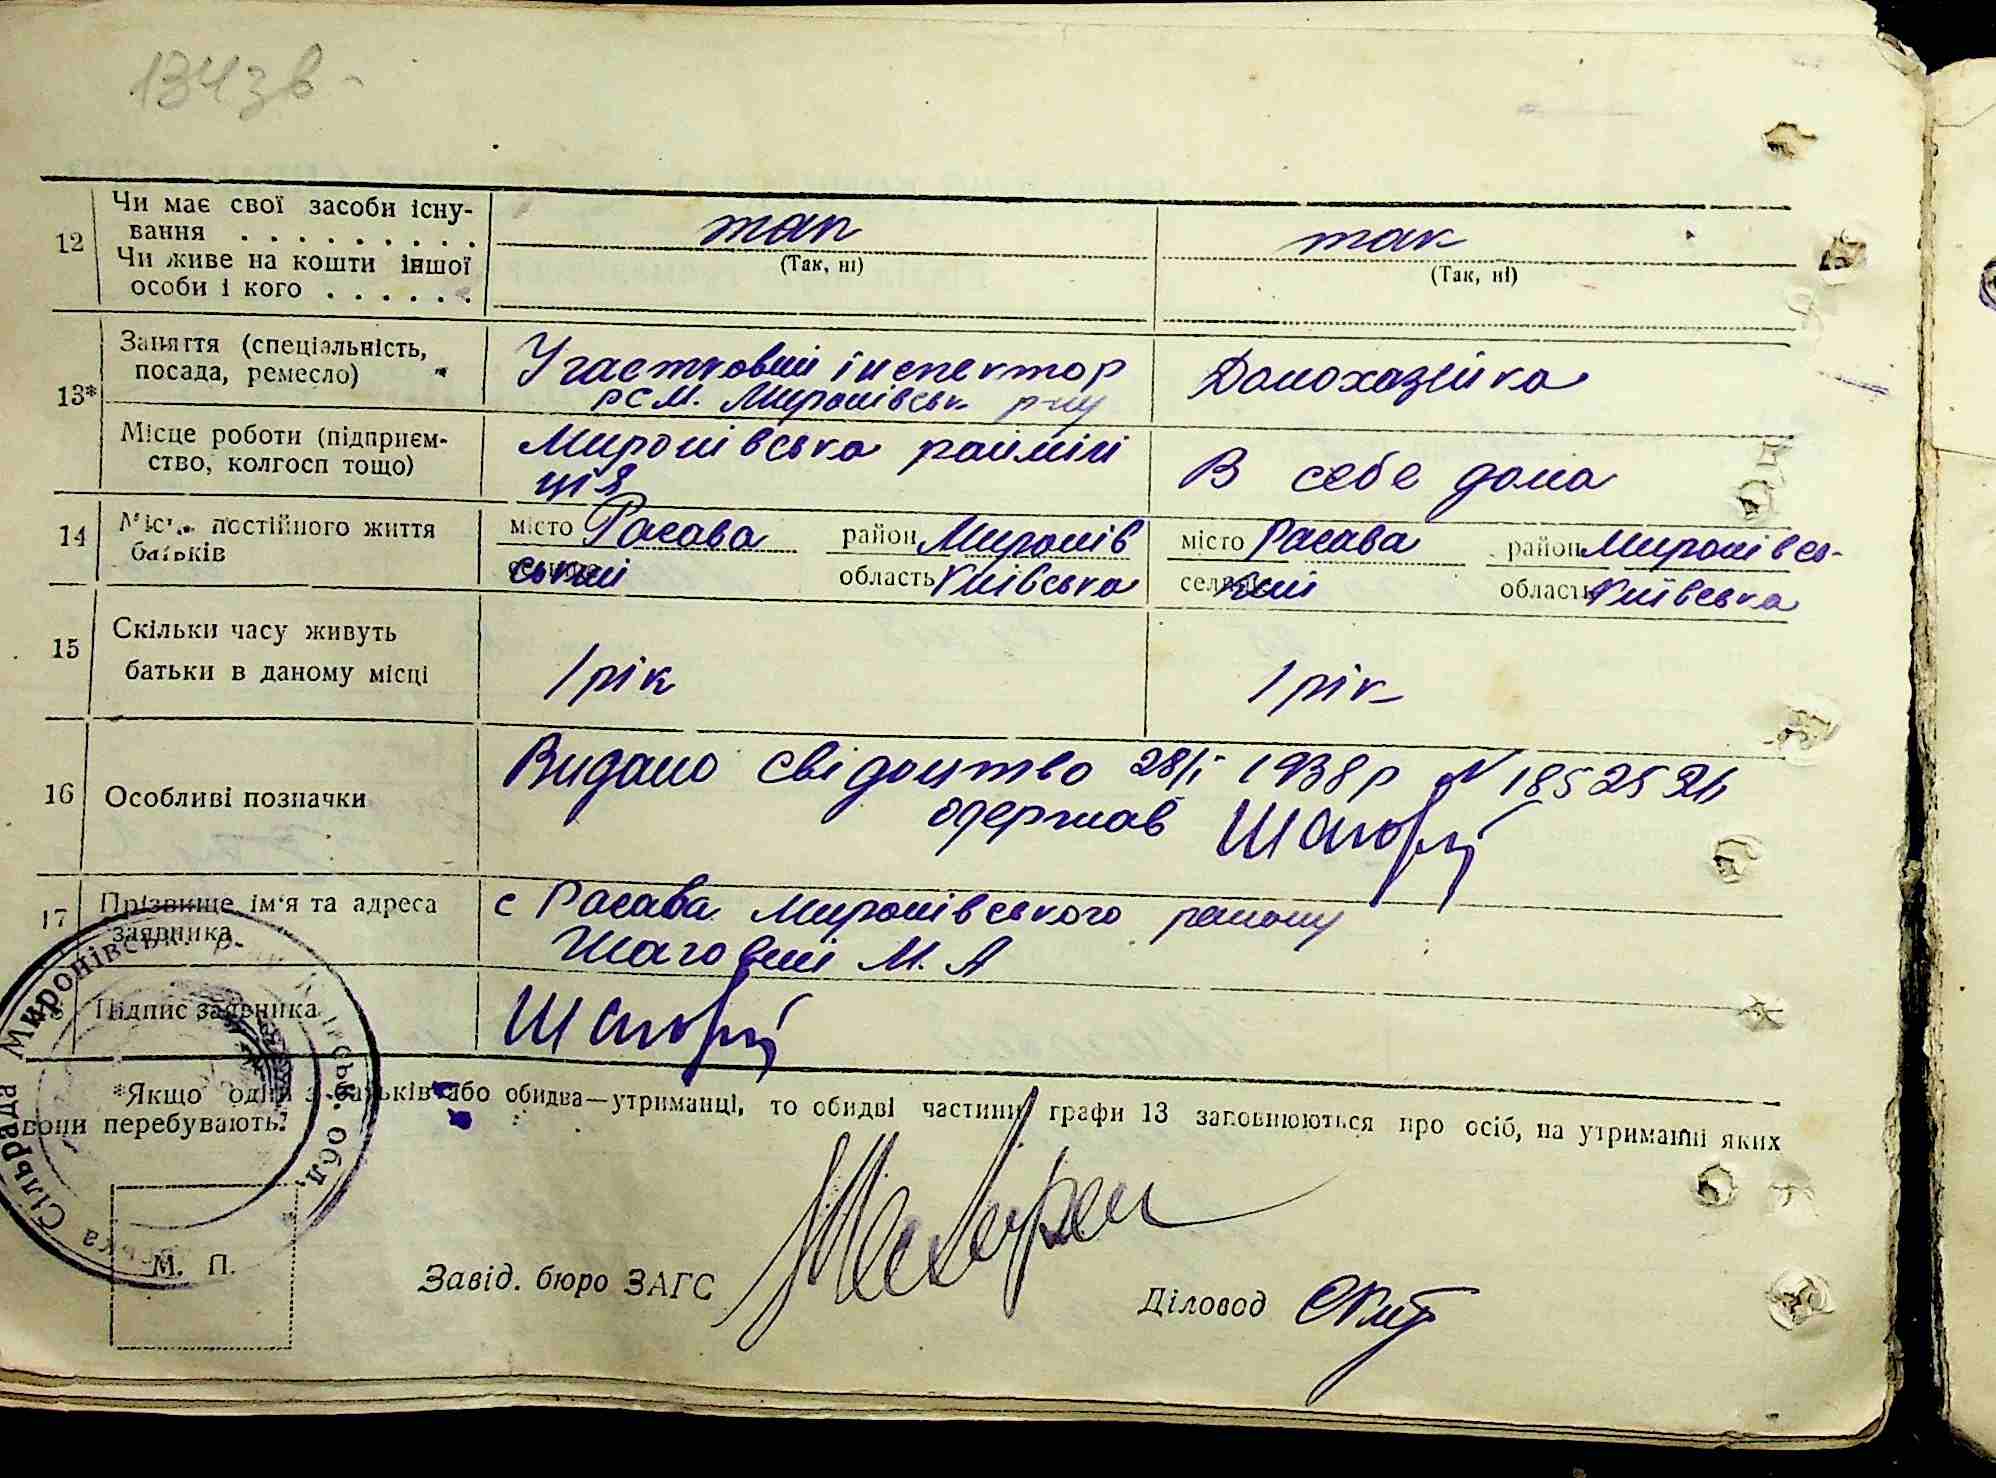 134 зв
12 Чи має свої засоби існу-
вання . . . . . . . . . так так
(Так, ні) (Так, ні)
Чи живе на кошти іншої
особи і кого . . . . . .
13* Заняття (спеціальність,
посада, ремесло) Участковий інспектор Домохазяйка
РСМ. Миронівськ р-ну
Місце роботи (підприєм-
ство, колгосп тощо) Миронівська райміліція В себе дома
14 Місце постійного життя
батьків
місто Расава район Миронівський область Київська
місто Расава район Миронівський область Київська
15 Скільки часу живуть
батьки в даному місці 1 рік 1 рік
16 Особливі позначки Видано свідоцтво 28/І 1938 р N
одержав
17 Прізвище ім'я та адреса
заявника с Расава Миронівського району
Шаговий М. А
Підпис заявника
*Якщо один з батьків або обидва—утриманці, то обидві частини графи 13 заповнюються про осіб, на утриманні яких
вони перебувають.
Сільрада Миронівськ. р. Обл.
М. П.
Завід. бюро ЗАГС
Діловод